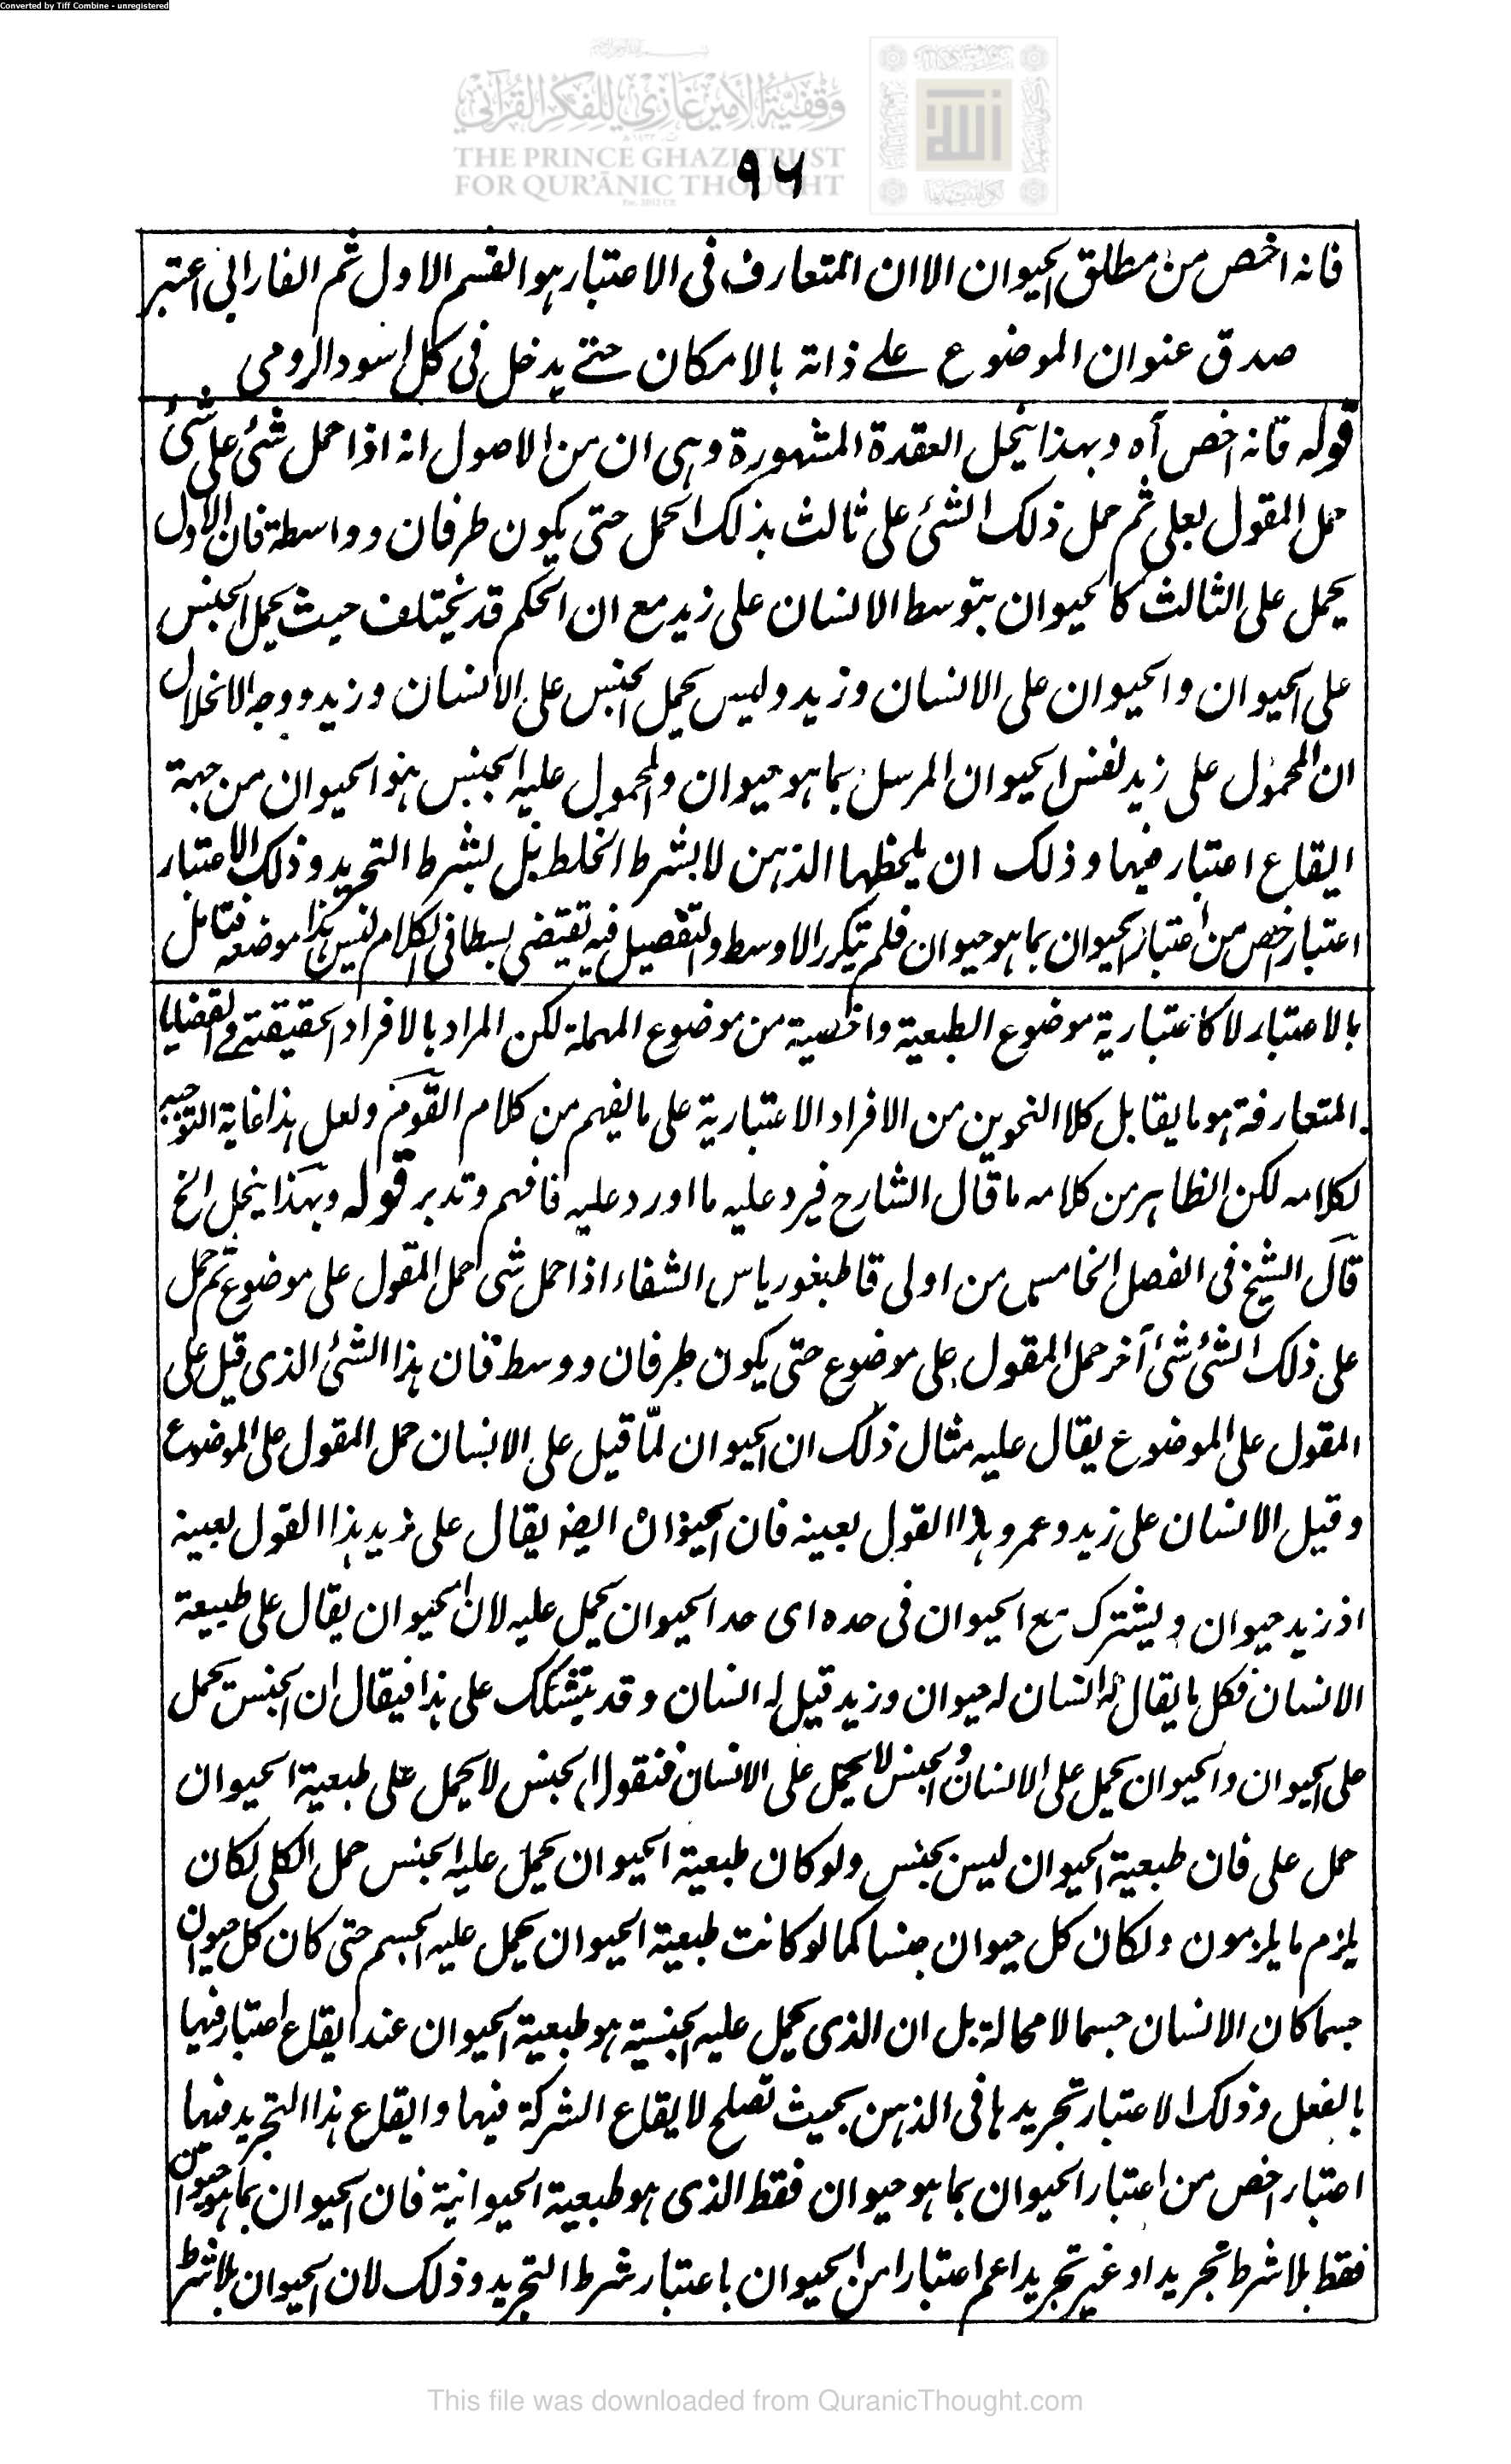 Converted by Tiff Combine - unregistered
وَقْفِيَّةُ الأَمِيرْ غَازِي لِلْفِكْرِ القُرْآنِيّ
THE PRINCE GHAZI TRUST
FOR QUR'ĀNIC THOUGHT
٩٦
فانه اخص من مطلق الحيوان الا ان المتعارف فى الاعتبار هو القسم الاول ثم الفارابى اعتبر
صدق عنوان الموضوع على ذاته بالامكان حتى يدخل فى كل اسود الرومى
قوله فانه اخص آه وبهذا ينحل العقدة المشهورة وهى ان من الاصول انه اذا حمل شئ على شئ
حمل المقول بعلى ثم حمل ذلك الشئ على ثالث بذلك الحمل حتى يكون طرفان وواسطة فان الاول
يحمل على الثالث كالحيوان بتوسط الانسان على زيد مع ان الحكم قد يختلف حيث يحمل الجنس
على الحيوان والحيوان على الانسان وزيد وليس يحمل الجنس على الانسان وزيد ووجه الانحلال
ان المحمول على زيد نفس الحيوان المرسل بما هو حيوان والمحمول عليه الجنس هو الحيوان من جهة
ايقاع اعتبار فيها وذلك ان يلحظها الذهن لا بشرط الخلط بل بشرط التجريد وذلك الاعتبار
اعتبار اخص من اعتبار الحيوان بما هو حيوان فلم يتكرر الاوسط والتفصيل فيه يقتضى بسطا فى الكلام ليس هذا موضعه فتامل
بالاعتبار لا كاعتبارية موضوع الطبعية واخصية من موضوع المهملة لكن المراد بالافراد الحقيقة فى القضايا
المتعارفة هو ما يقابل كلا النحوين من الافراد الاعتبارية على ما يفهم من كلام القوم ولعل هذا غاية التوجيه
لكلامه لكن الظاهر من كلامه ما قال الشارح فيرد عليه ما اورد عليه فافهم وتدبر قوله وبهذا ينحل الخ
قال الشيخ فى الفصل الخامس من اولى قاطيغورياس الشفاء اذا حمل شى حمل المقول على موضوع ثم حمل
على ذلك الشئ شئ آخر حمل المقول على موضوع حتى يكون طرفان ووسط فان هذا الشئ الذى قيل على
المقول على الموضوع يقال عليه مثال ذلك ان الحيوان لمّا قيل على الانسان حمل المقول على الموضوع
وقيل الانسان على زيد وعمرو هذا القول بعينه فان الحيوان ايضا يقال على زيد هذا القول بعينه
اذ زيد حيوان ويشترك مع الحيوان فى حده اى حد الحيوان يحمل عليه لان الحيوان يقال على طبيعة
الانسان فكل ما يقال له انسان له حيوان وزيد قيل له انسان وقد يتشكك على هذا فيقال ان الجنس يحمل
على الحيوان والحيوان يحمل على الانسان والجنس لا يحمل على الانسان فنقول ان الجنس لا يحمل على طبعية الحيوان
حمل على فان طبعية الحيوان ليس بجنس ولو كان طبعية الحيوان يحمل عليه الجنس حمل الكلى لكان
يلزم ما يلزمون ولكان كل حيوان جنسا كما لو كانت طبعية الحيوان يحمل عليه الجسم حتى كان كل حيوان
جسما كان الانسان جسما لا محالة بل ان الذى يحمل عليه الجنسية هو طبعية الحيوان عند ايقاع اعتبار فيها
بالفعل وذلك الاعتبار تجريدها فى الذهن بحيث تصلح لايقاع الشركة فيها وايقاع هذا التجريد فيها
اعتبار اخص من اعتبار الحيوان بما هو حيوان فقط الذى هو طبعية الحيوانية فان الحيوان بما هو حيوان
فقط بلا شرط تجريد او غير تجريد اعم اعتبارا من الحيوان باعتبار شرط التجريد وذلك لان الحيوان بلا شرط
This file was downloaded from QuranicThought.com